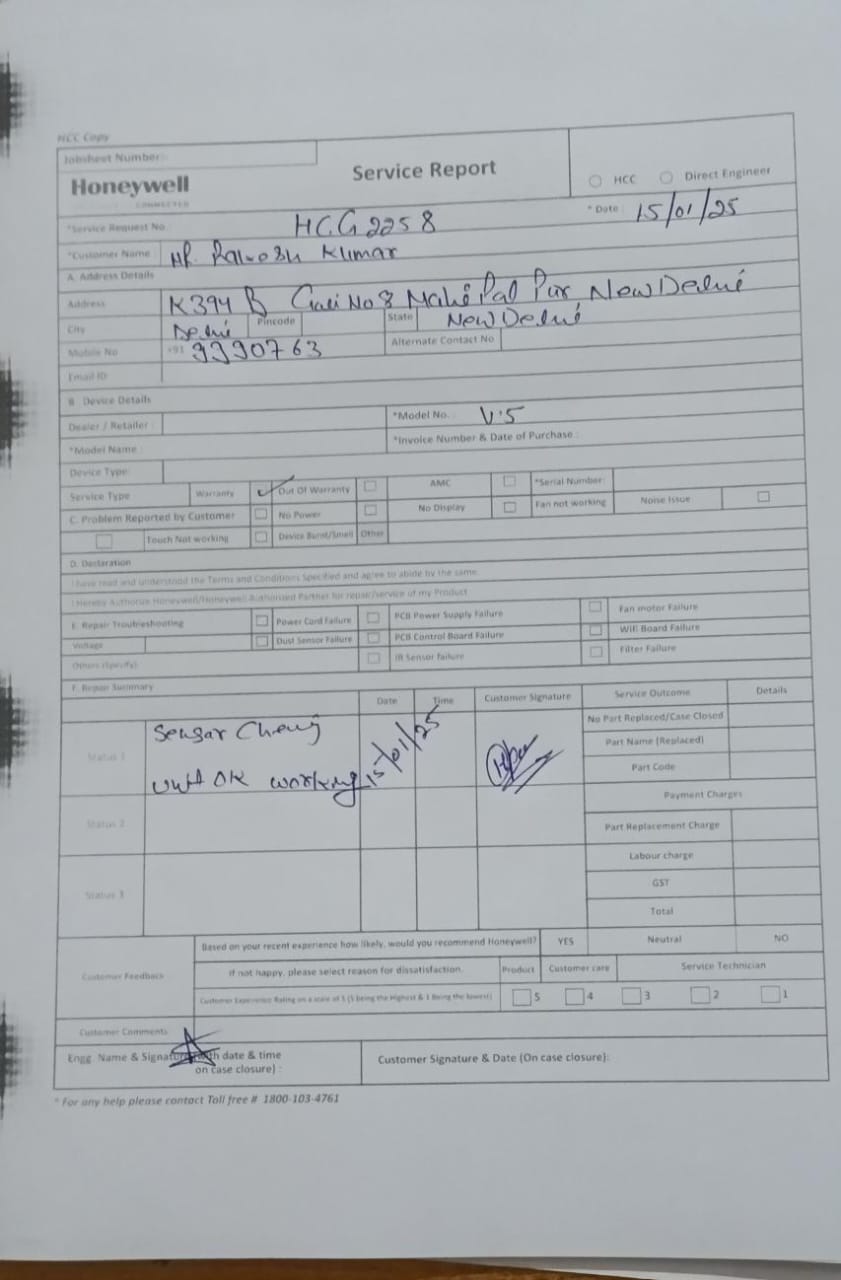 HCC Copy
Jobsheet Number:
Honeywell
CONNECTED
Service Report
HCC Direct Engineer
*Service Request No. HCG2258 * Date : 15/01/25
*Customer Name Mr. Kumar
A. Address Details
Address K394 B Gali No 8 Mahi Pal Pur, New Delhi
City Delhi Pincode State New Delhi
Mobile No +91 9990763 Alternate Contact No
Email ID:
B. Device Details
Dealer / Retailer : *Model No. : V5
*Model Name : *Invoice Number & Date of Purchase :
Device Type:
Service Type Warranty ✓ Out Of Warranty AMC *Serial Number:
C. Problem Reported by Customer No Power No Display Fan not working Noise Issue
Touch Not working Device Burst/Smell Other
D. Declaration
I have read and understood the Terms and Conditions Specified and agree to abide by the same.
I Hereby Authorize Honeywell/Honeywell Authorized Partner for repair/service of my Product
E. Repair Troubleshooting Power Card Failure PCB Power Supply Failure Fan motor Failure
Voltage Dust Sensor Failure PCB Control Board Failure Wifi Board Failure
Others (Specify) IR Sensor failure Filter Failure
F. Repair Summary
Date Time Customer Signature Service Outcome Details
Status 1 15/01/25 No Part Replaced/Case Closed
Unit OK working Part Name (Replaced)
Part Code
Payment Charges
Status 2 Part Replacement Charge
Labour charge
Status 3 GST
Total
Customer Feedback Based on your recent experience how likely, would you recommend Honeywell? YES Neutral NO
If not happy, please select reason for dissatisfaction. Product Customer care Service Technician
Customer Experience Rating on a scale of 5 (5 being the Highest & 1 Being the lowest) 5 4 3 2 1
Customer Comments
Engg. Name & Signature with date & time
on case closure) :
Customer Signature & Date (On case closure):
* For any help please contact Toll free # 1800-103-4761